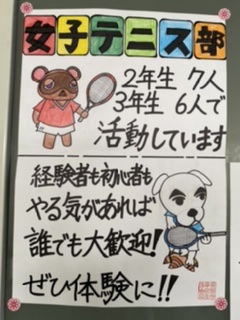 女子テニス部
2年生 7人
3年生 6人で
活動しています
経験者も初心者も
やる気があれば
誰でも大歓迎!
ぜひ体験に!!